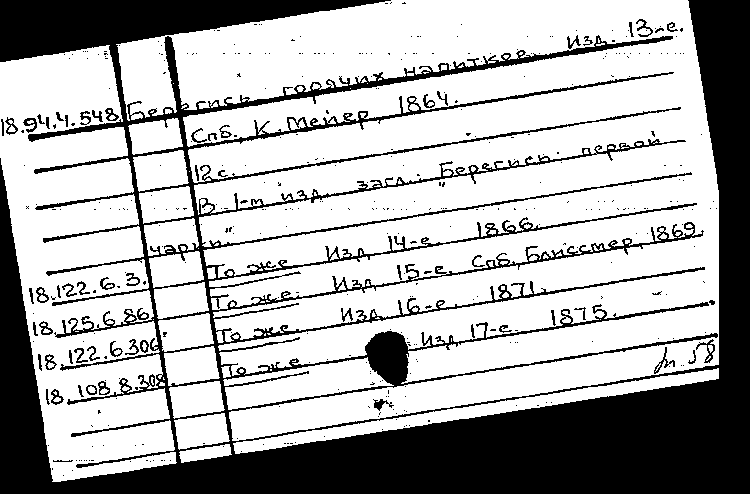 18.94.4.548 Берегись горячих напитков. Изд. 13-е.
Спб., К. Мейер, 1864.
12 с.
В 1-м изд. загл.: "Берегись первой
чарки."
18.122.6.3. То же. Изд. 14-е. 1866.
18.125.6.86. То же. Изд. 15-е. Спб., Блисстер, 1869.
18.122.6.306. То же. Изд. 16-е. 1871.
18.108.8.308. То же. Изд. 17-е. 1875.
58